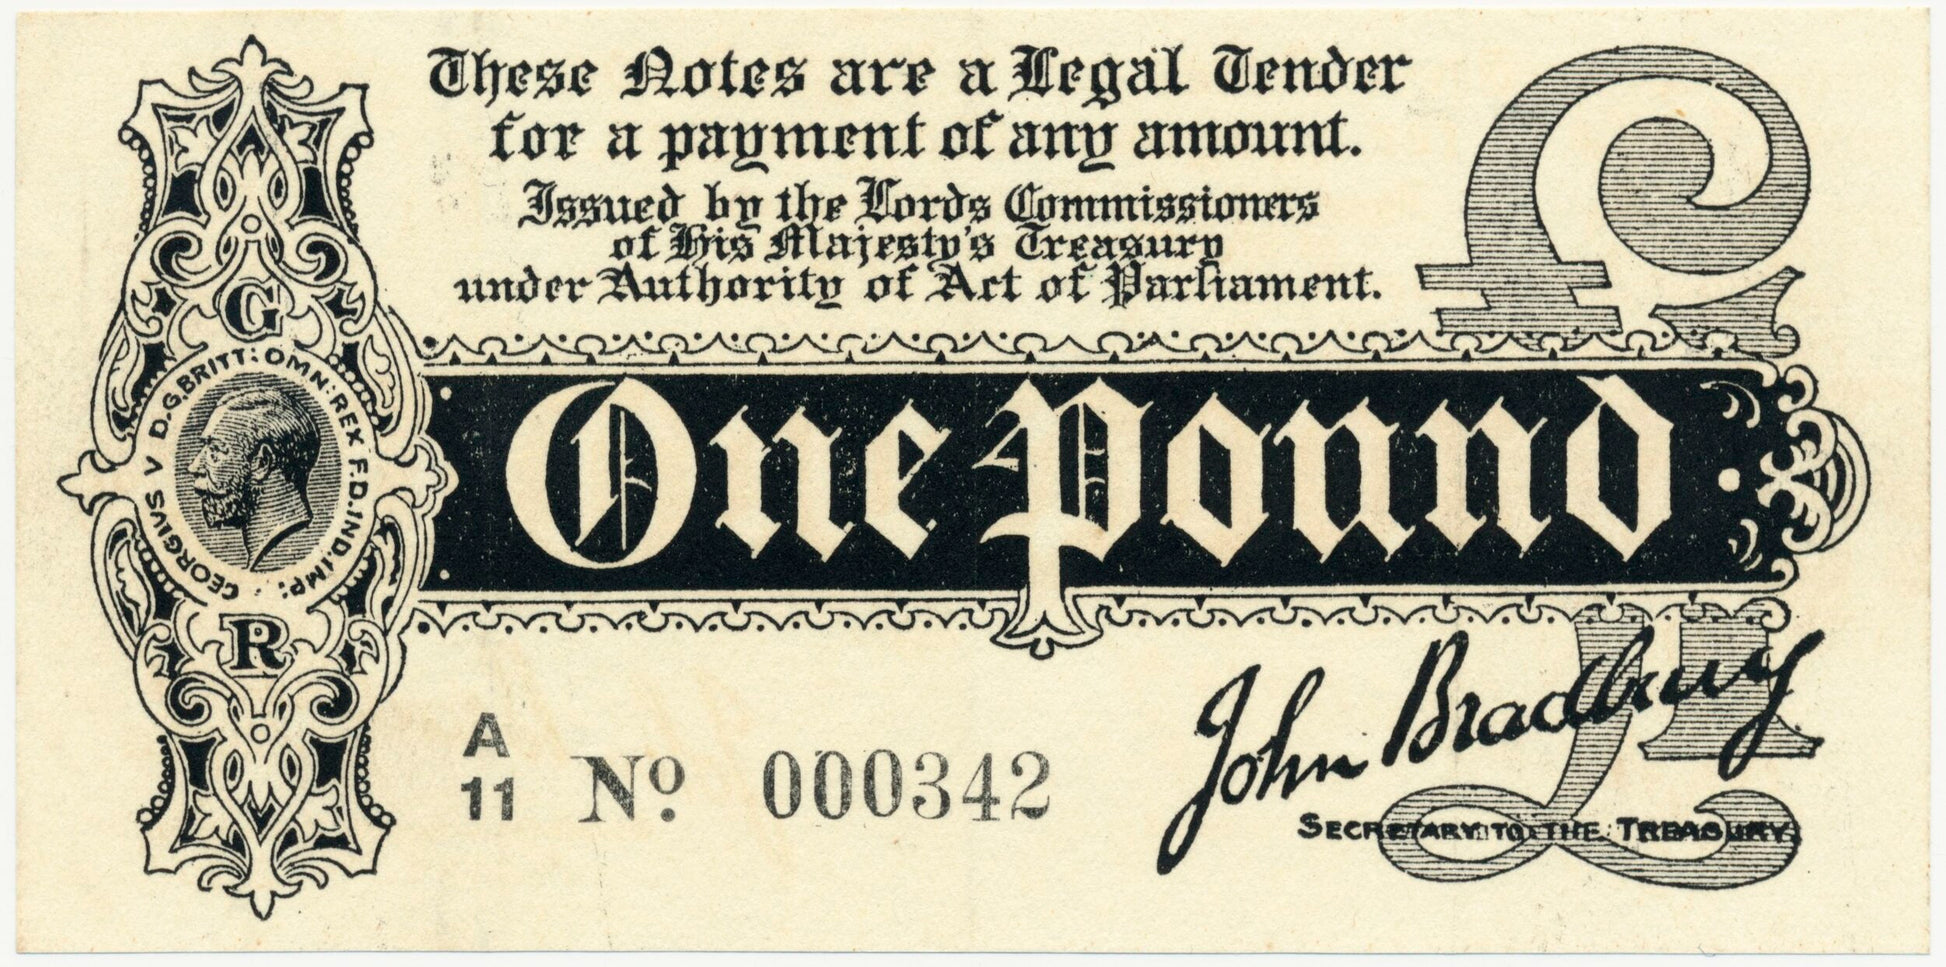 These Notes are a Legal Tender
for a payment of any amount.
Issued by the Lords Commissioners
of His Majesty's Treasury
under Authority of Act of Parliament.
£1
G
GEORGIVS V D.G.BRITT: OMN: REX F.D.IND.IMP:
R
One Pound
A
11 Nº 000342
John Bradbury
SECRETARY TO THE TREASURY.